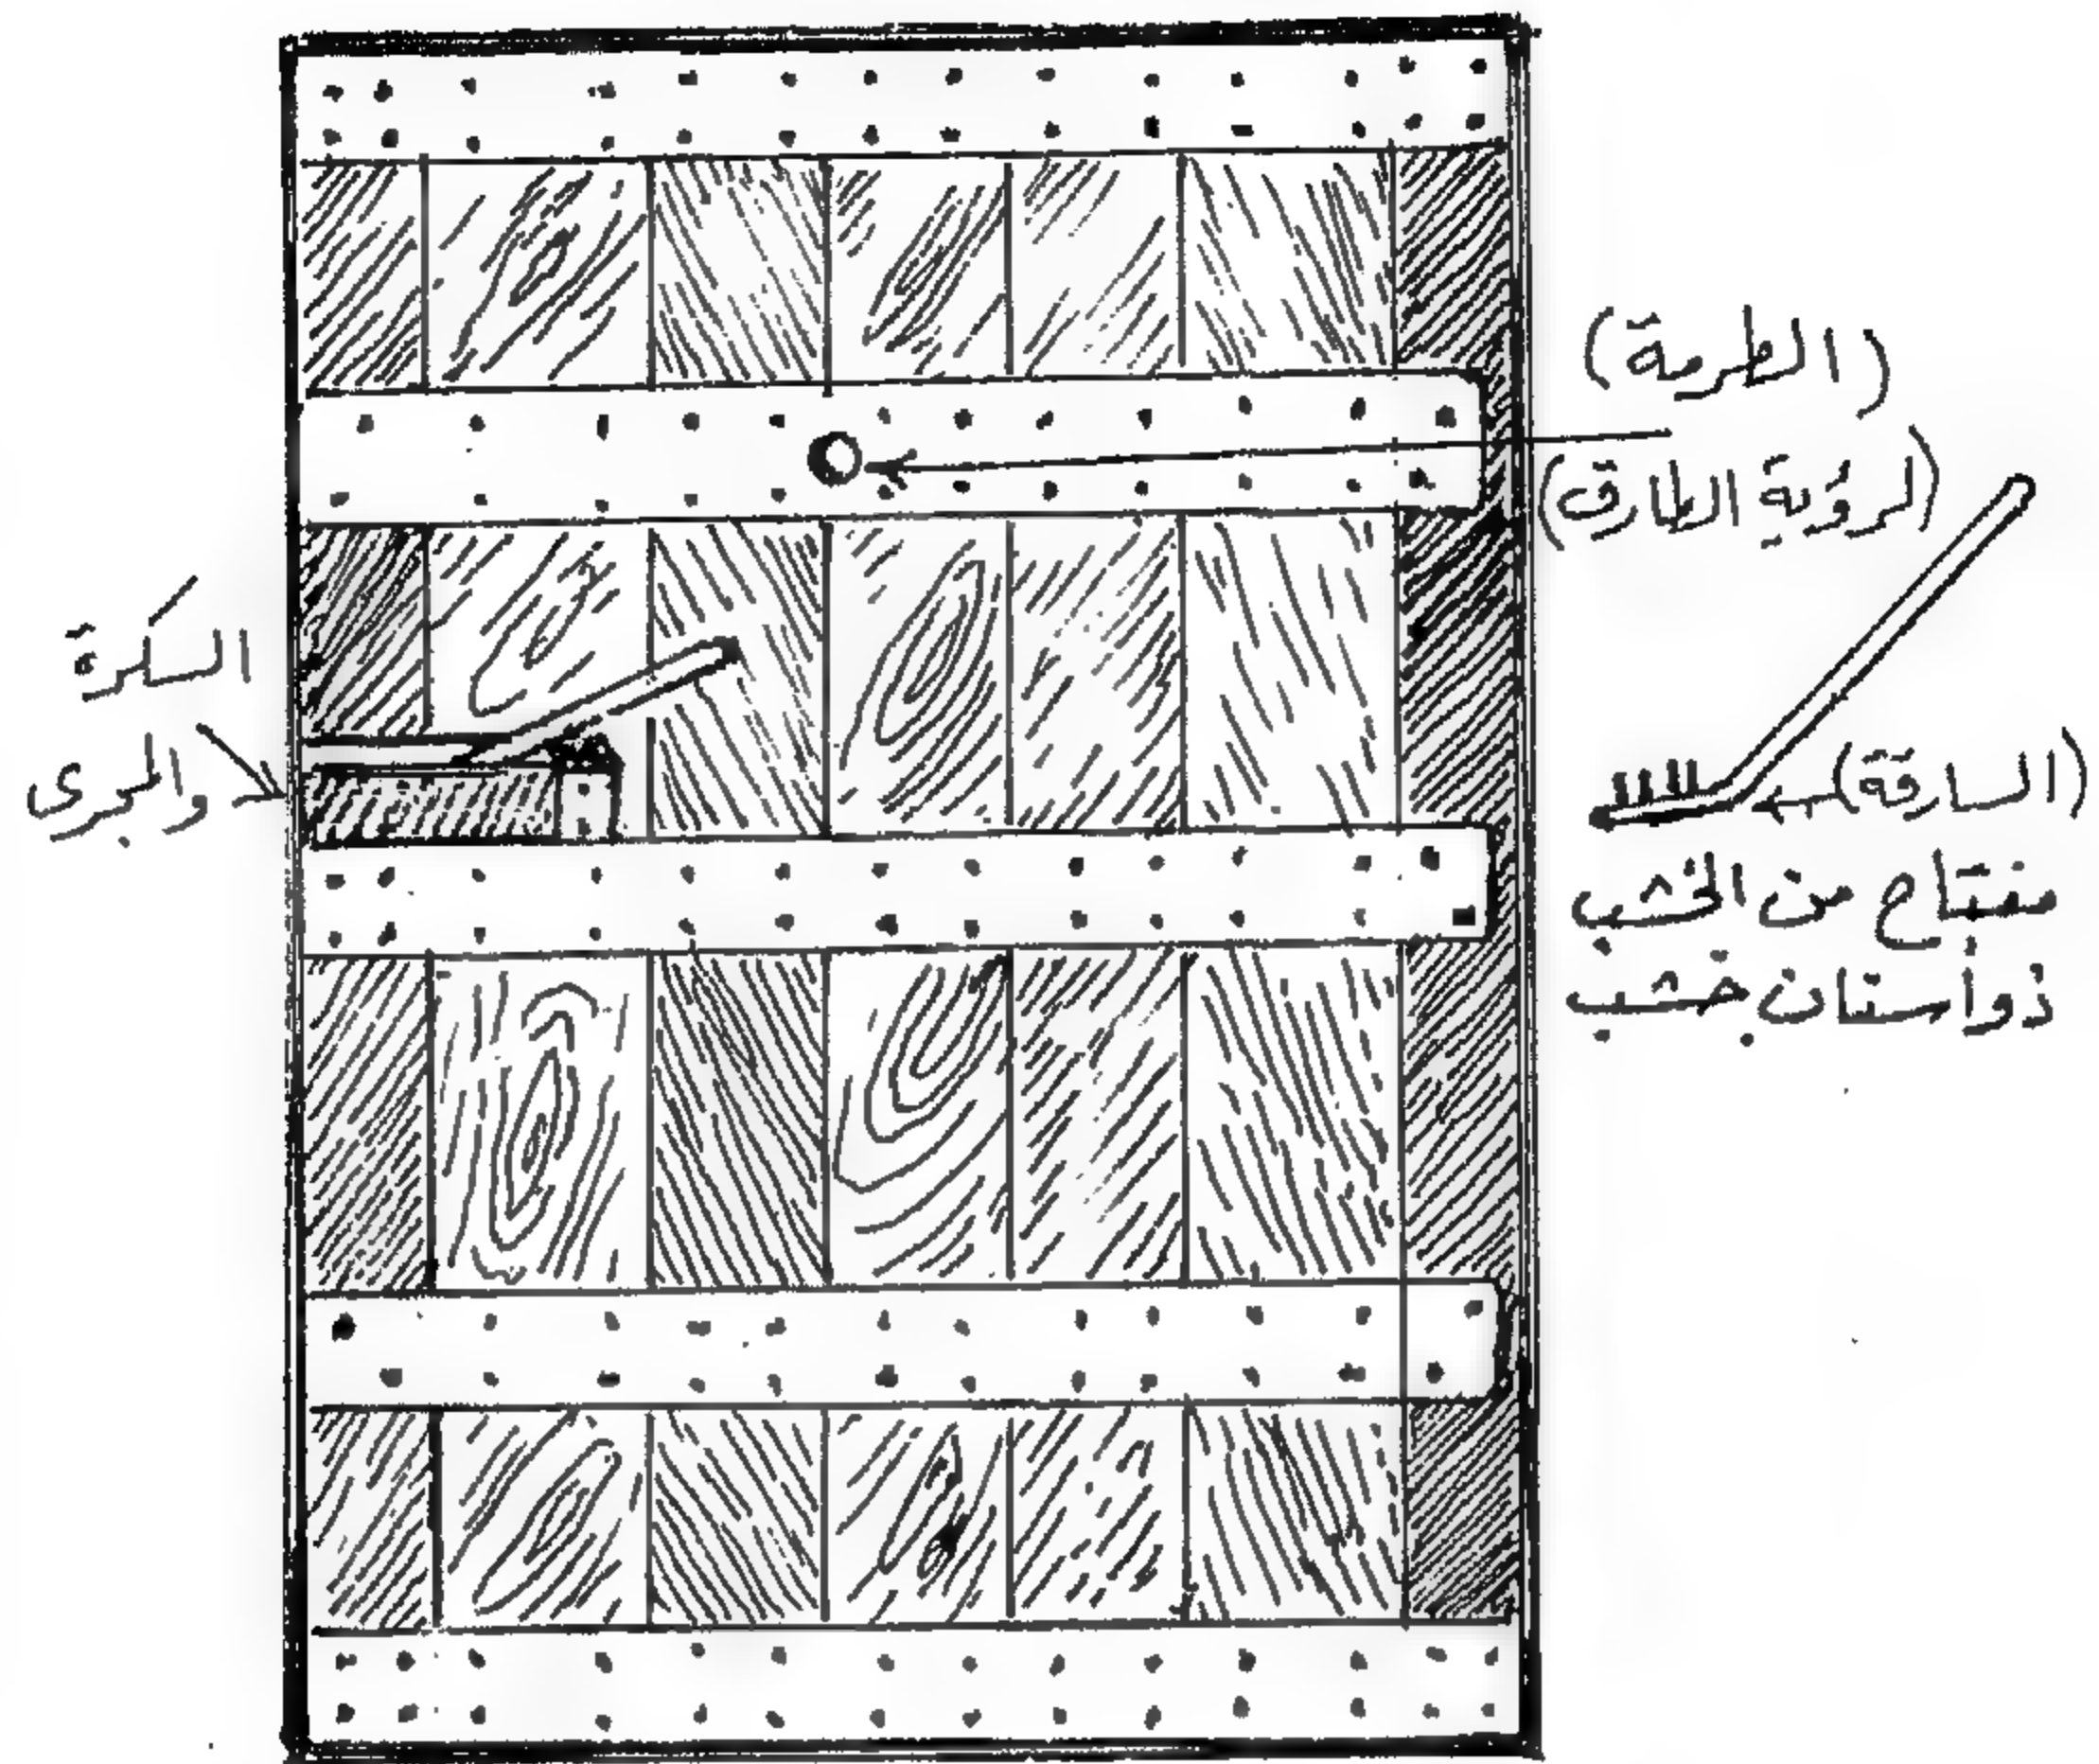 (الطرمة)
(لرؤية الطارق)
السكرة
والمجرى
(السارقة)
مفتاح من الخشب
ذو أسنان خشب